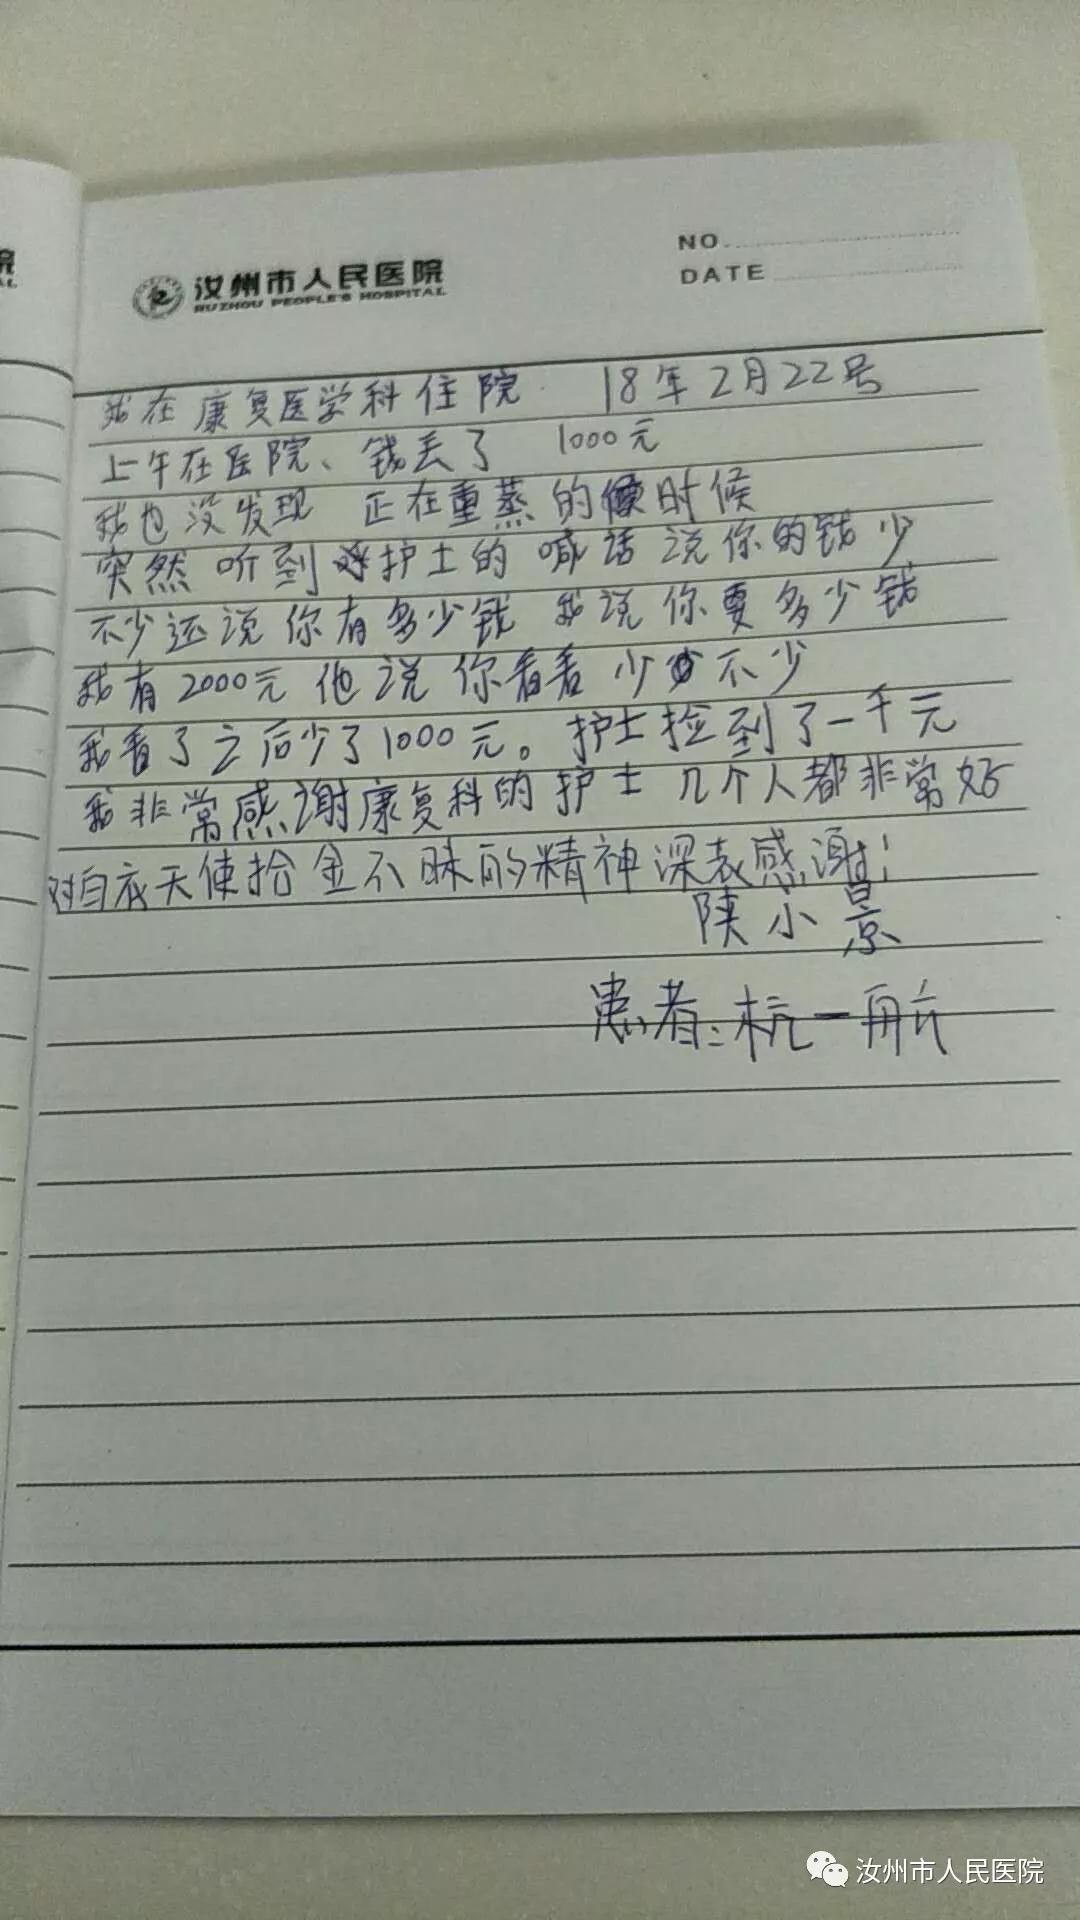 院
AL
汝州市人民医院
RUZHOU PEOPLE'S HOSPITAL
NO
DATE
我在康复医学科住院 18年2月22号
上午在医院、钱丢了 1000元
我也没发现 正在熏蒸的时候
突然听到护士的喊话说你的钱少
不少还说你有多少钱 我说你要多少钱
我有2000元他说你看看少不少
我看了之后少了1000元。护士捡到了一千元
我非常感谢康复科的护士 几个人都非常好
对白衣天使拾金不昧的精神深表感谢!
陕小景
患者:杭一航
汝州市人民医院